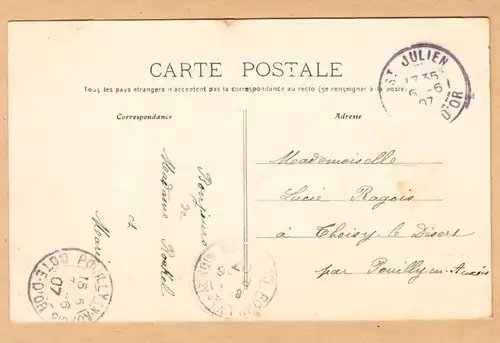 CARTE POSTALE
Tous les pays étrangers n'acceptent pas la correspondance au recto (se renseigner à la poste)
Correspondance
Adresse
Bonjours
de
Madame
et
Marie
Mademoiselle
Lucie Ragois
à Thoisy le Désert
par Pouilly-en-Auxois
ST JULIEN
17 35
6 -6
07
D'OR
15
7 -6
07
CÔTE-D'OR